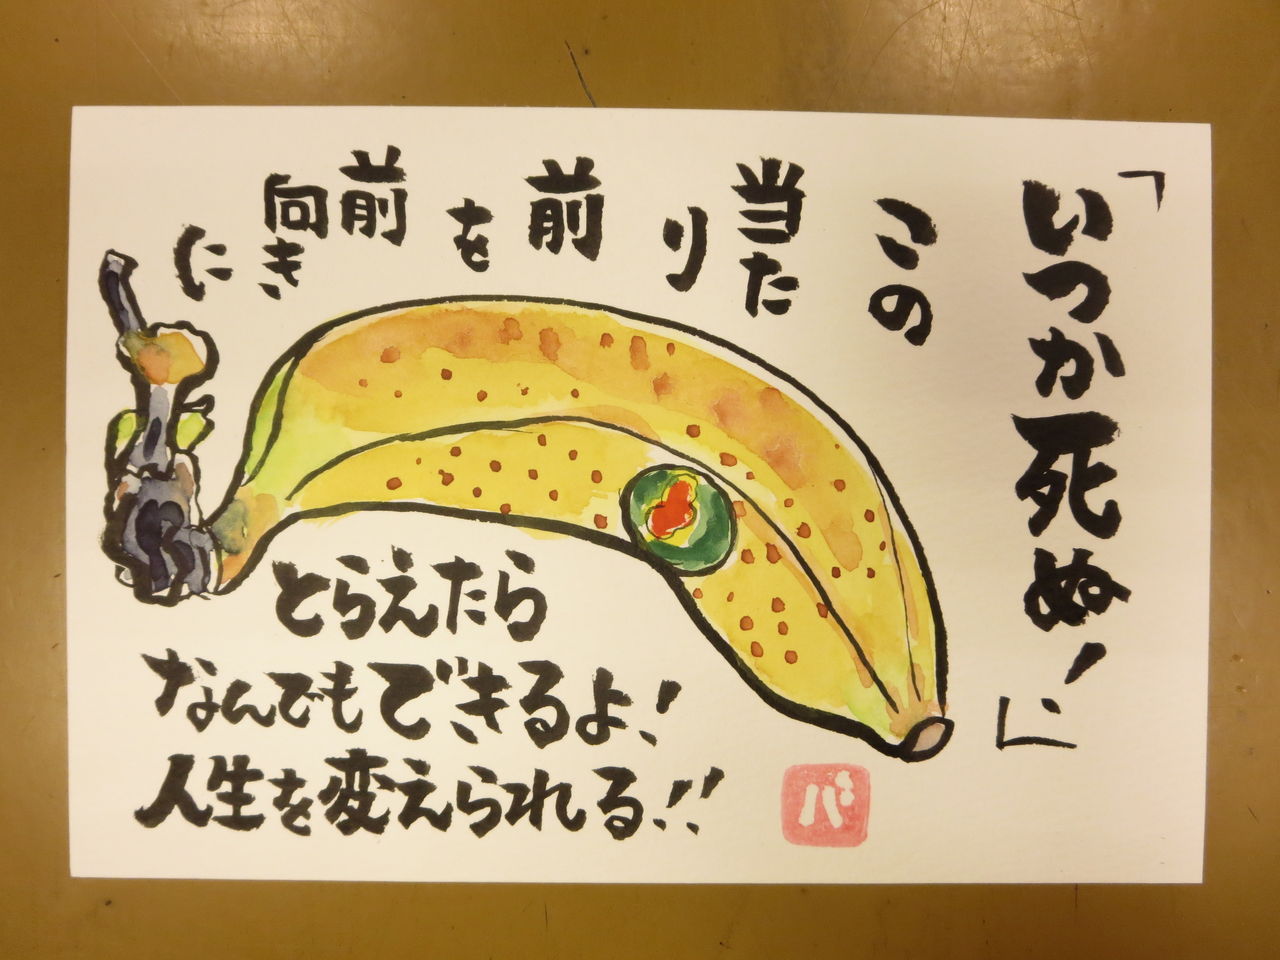 「いつか死ぬ!」
この
当たり
前を
前向きに
とらえたら
なんでもできるよ!
人生を変えられる!!
バ